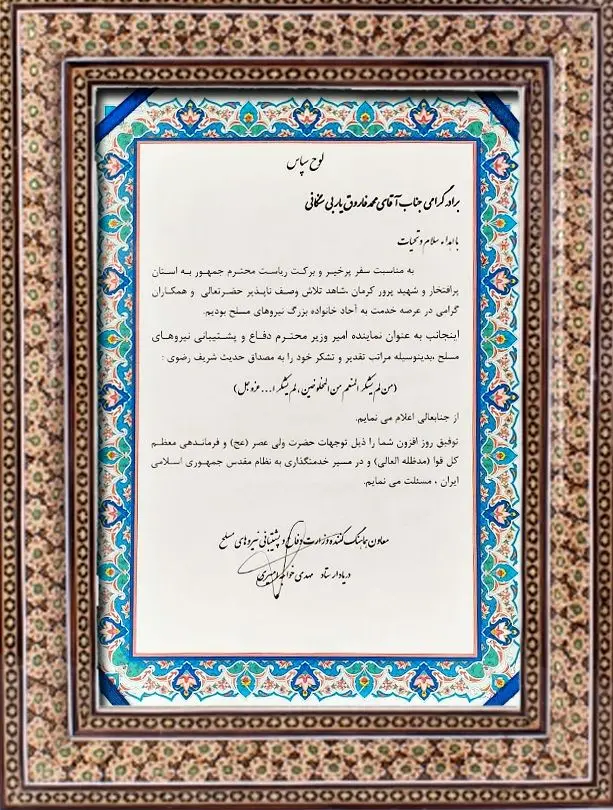 لوح سپاس
برادر گرامی جناب آقای محمد فاروق یاربی
با اهداء سلام و تحیات
به مناسبت سفر پرخیر و برکت ریاست محترم جمهور به استان
پرافتخار و شهید پرور کرمان ،شاهد تلاش وصف ناپذیر حضرتعالی و همکاران
گرامی در عرصه خدمت به آحاد خانواده بزرگ نیروهای مسلح بودیم.
اینجانب به عنوان نماینده امیر وزیر محترم دفاع و پشتیبانی نیروهای
مسلح ،بدینوسیله مراتب تقدیر و تشکر خود را به مصداق حدیث شریف رضوی :
(من لم یشکر المنعم من المخلوقین، لم یشکر ا... عزوجل)
از جنابعالی اعلام می نمایم.
توفیق روز افزون شما را ذیل توجهات حضرت ولی عصر (عج) و فرماندهی معظم
کل قوا (مدظله العالی) و در مسیر خدمتگذاری به نظام مقدس جمهوری اسلامی
ایران ، مسئلت می نمایم.
معاون هماهنگ کننده وزارت دفاع و پشتیبانی نیروهای مسلح
دریادار ستاد مهدی